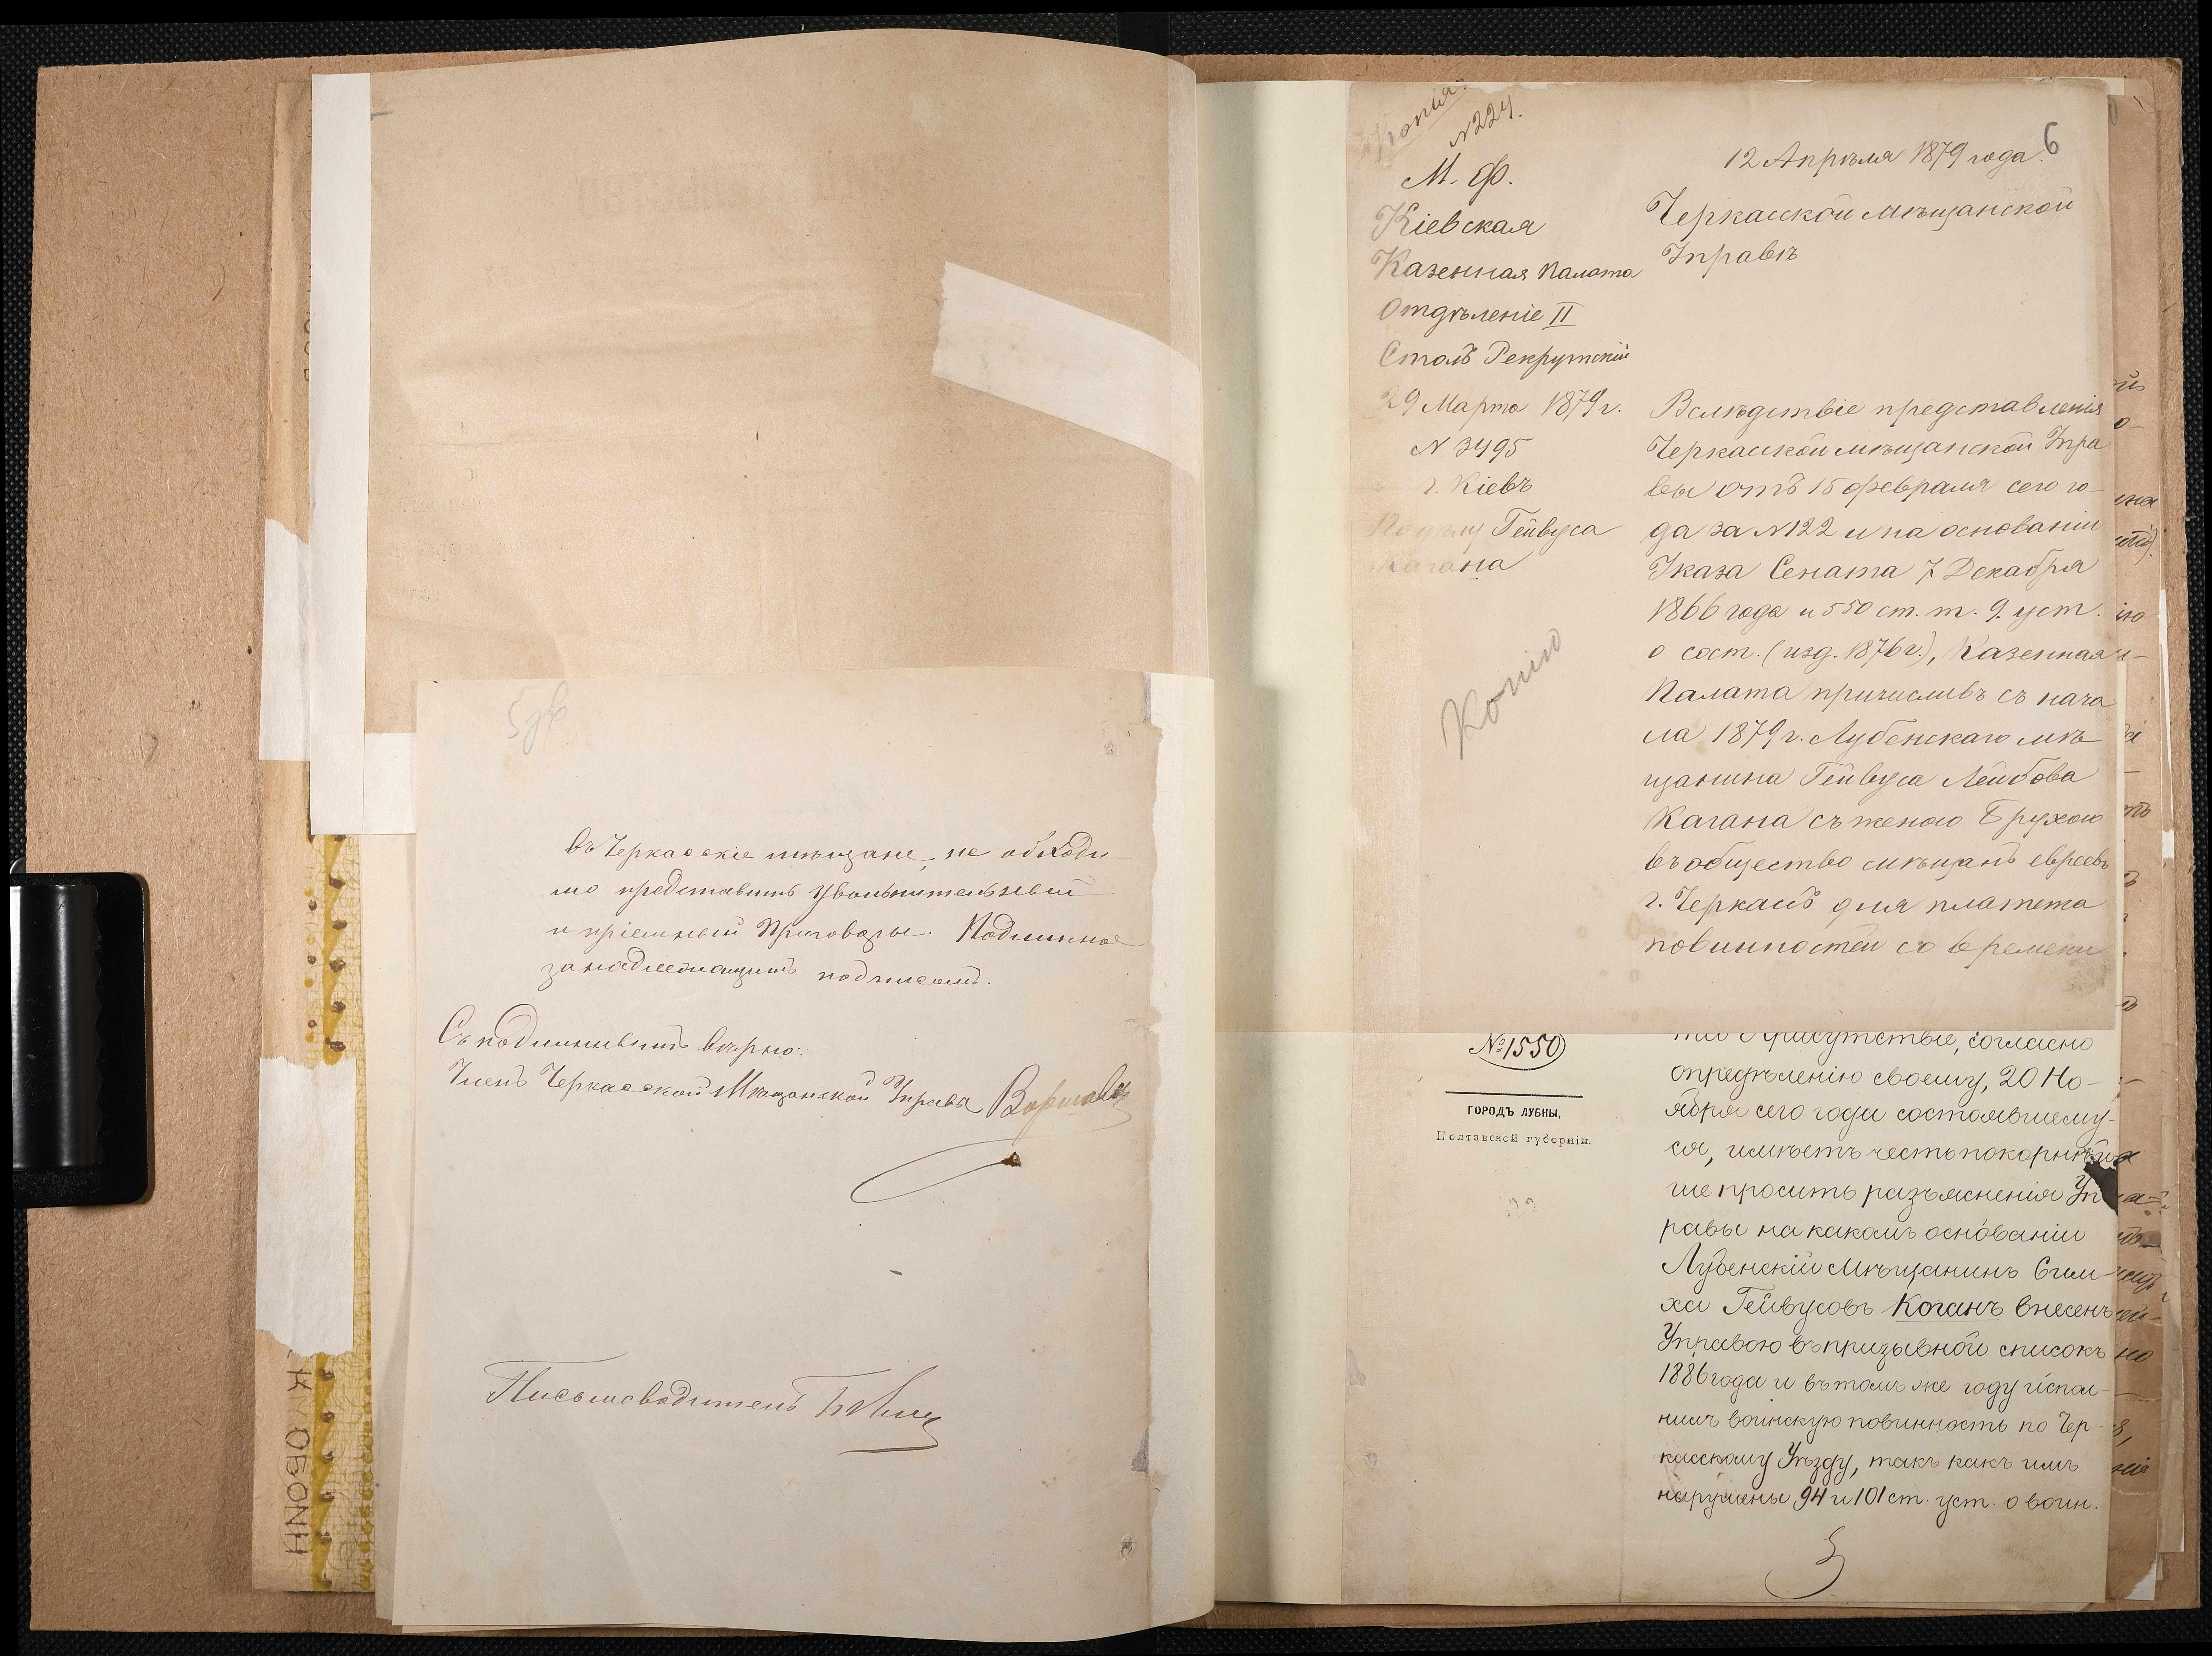 въ Черкасскіе мѣщане, не обходи-
мо представить увольнительный
и пріемный Приговоры. Подлинное
за надлежащимъ подписомъ.
Съ подлиннымъ вѣрно:
Членъ Черкасской Мѣщанской Управы
Письмоводитель
Копія
N 224.
6
12 Апрѣля 1879 года.
М. Ф.
Кіевская
Казенная Палата
Отдѣленіе II
Столъ Рекрутскій
29 Марта 1879 г.
N 3495
г. Кіевъ
По дѣлу Гейвуса
Кагана
Копію
Черкасской мѣщанской
Управѣ
Вслѣдствіе представленія
Черкасской мѣщанской Упра
вы отъ 15 февраля сего го-
да за N 122 и на основаніи
Указа Сената 7 Декабря
1866 года и 550 ст. т. 9. уст.
о сост. (изд. 1876 г.), Казенная
Палата причисливъ съ нача
ла 1879 г. Лубенскаго мѣ
щанина Гейвуса Лейбова
Кагана съ женою Брухою
въ общество мѣщанъ евреевъ
г. Черкасъ для платежа
повинностей со времени
№ 1550
ГОРОДЪ ЛУБНЫ,
Полтавской губерніи.
Присутствіе, согласно
опредѣленію своему, 20 Но-
ября сего года состоявшему-
ся, имѣетъ честь покорнѣй
ше просить разъясненія Уп
равы на какомъ основаніи
Лубенскій мѣщанинъ Сим-
ха Гейвусовъ Коганъ внесенъ
Управою въ призывной списокъ
1886 года и въ томъ же году испол-
нилъ воинскую повинность по Чер-
касскому Уѣзду, такъ какъ имъ
нарушены 94 и 101 ст. уст. о воин.